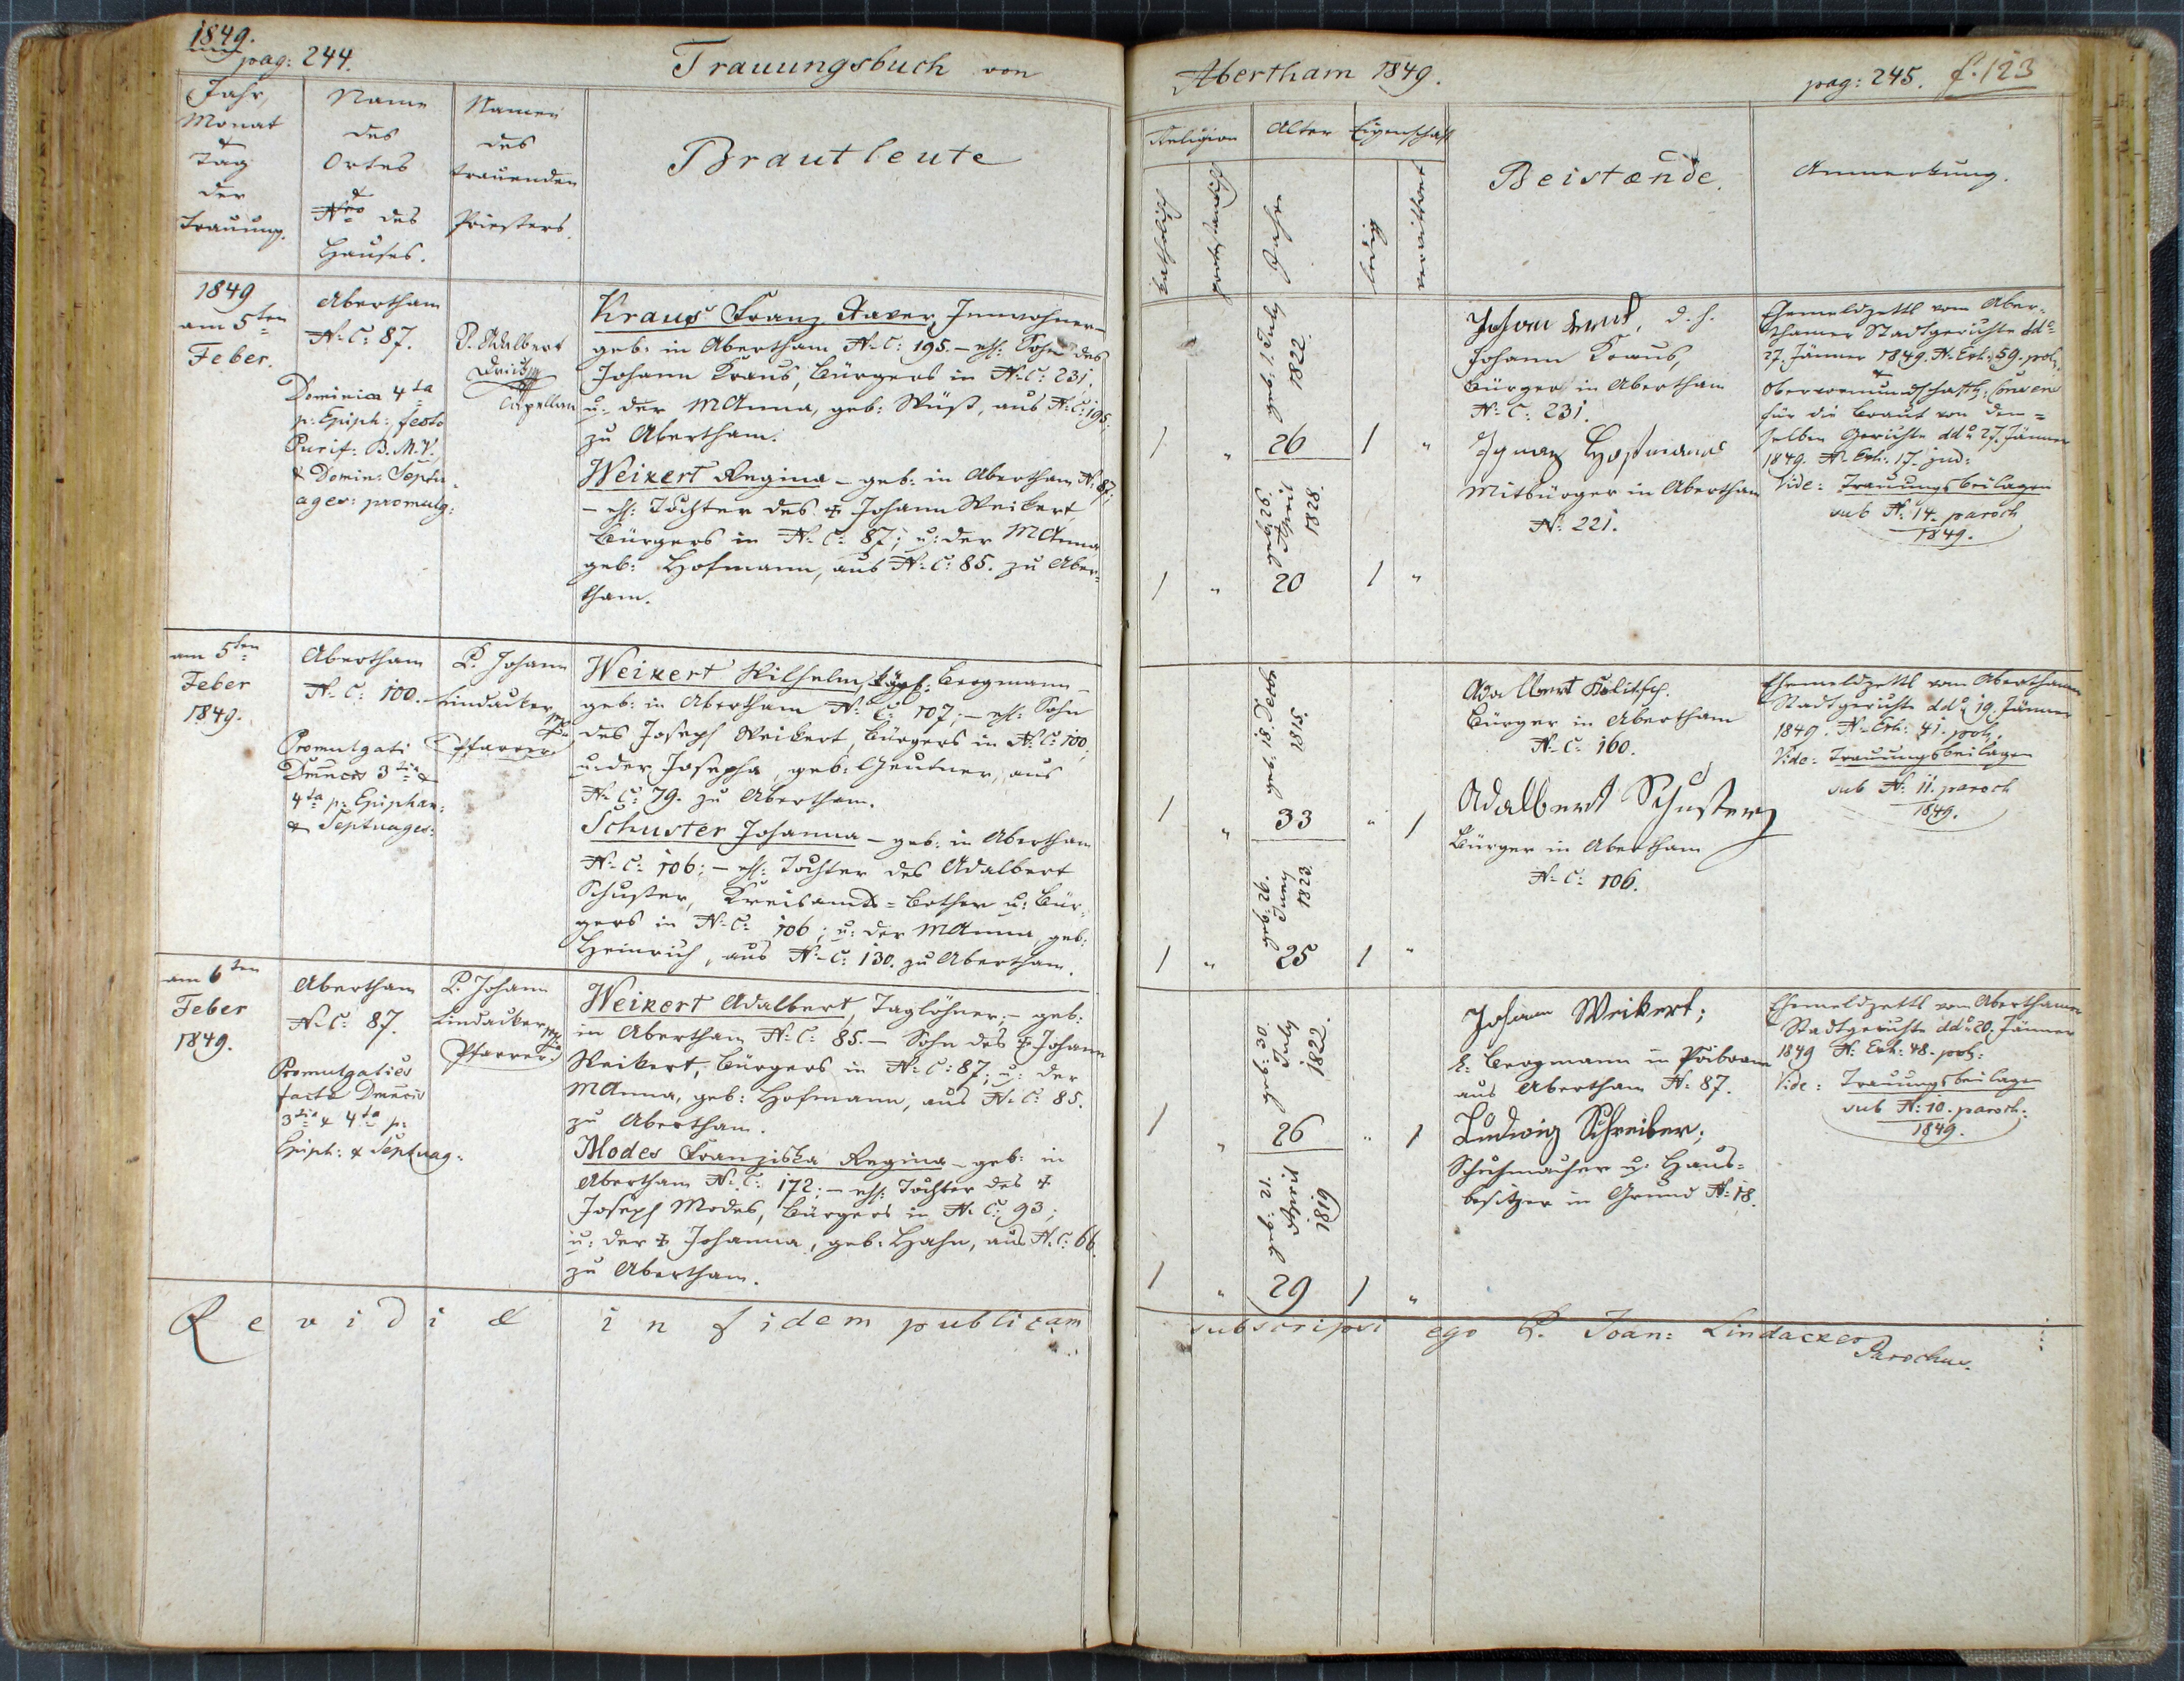 1849.
pag: 244.
Trauungsbuch von
Jahr,
Monat
&
Tag
der
Trauung.
Name
des
Ortes
&
Nro des
Hauses.
Namen
des
trauenden
Priesters.
Brautleute
1849
am 5ten
Feber.
Abertham
N. C: 87.
Dominica 4ta
p: Epiph: festo
Purif: B. M. V.
& Domin: Septu-
ages: promulg:
P. Adalbert
Capellan
Kraus Franz Xaver, Inwohner-
geb: in Abertham N. C: 195. – ehl: Sohn des
Johann Kraus, Bürgers in N. C: 231.
u: der MAnna, geb: Wüst, aus N. C: 195.
zu Abertham.
Weikert Regina – geb: in Abertham N. 87;
– ehl: Tochter des † Johann Weikert,
Bürgers in N. C: 87; u: der MAnna
geb: Hofmann, aus N. C: 85. zu Aber-
tham.
am 5ten
Feber
1849.
Abertham
N. C: 100.
Promulgati
Dmncis 3tia &
4ta p: Epiphan:
& Septuages:
P. Johann
Lindacker
Pfarrer
Weikert Wilhelm, Bergmann –
geb: in Abertham N. C: 107; – ehl: Sohn
des Joseph Weikert, Bürgers in N. C: 100,
u: der Josepha, geb: Zeutner, aus
N. C: 79. zu Abertham.
Schuster Johanna – geb: in Abertham
N. C: 106; – ehl: Tochter des Adalbert
Schuster, Kreisamts-Bothen u: Bür-
gers in N. C: 106; u: der MAnna, geb:
Heinrich, aus N. C: 130. zu Abertham.
am 6ten
Feber
1849.
Abertham
N. C: 87.
Promulgatio
facta Dmncis
3tia & 4ta p:
Epiph: & Septuag:
P. Johann
Lindacker
Pfarrer
Weikert Adalbert, Taglöhner, – geb:
in Abertham N. C: 85. – Sohn des † Johann
Weikert, Bürgers in N. C: 87; u: der
MAnna, geb: Hofmann, aus N. C: 85.
zu Abertham.
Modes Franziska Regina – geb: in
Abertham N. C: 172; – ehl: Tochter des †
Joseph Modes, Bürgers in N. C: 93;
u: der † Johanna, geb: Hahn, aus N. C: 66.
zu Abertham.
Revidi & in fidem publicam
Abertham 1849.
pag: 245. f. 123
Religion
Alter
Eigenschaft
Beistænde.
Anmerkung.
katholisch
protestantisch
Jahre
ledig
verwittwet
geb: 1. July
1822.
1 " 26 1 "
geb: 26.
April
1828.
1 " 20 1 "
Johann Kraus,
Bürger in Abertham
N. C: 231.
Ignaz Hofmann
Mitbürger in Abertham
N: 221.
Ehemeldzettl vom Aber-
thamer Stadtgerichte ddo
27. Jänner 1849. N. Exh: 59. pol:
&
obervormundschaftl: Consens
für die Braut von dem-
selben Gerichte ddo 27. Jänner
1849. N. Exh: 17. jud:
Vide: Trauungsbeilagen
sub N: 14. paroch
1849.
1815.
1 " 33 " 1
geb: 26.
Juny
1823.
1 " 25 1 "
Bürger in Abertham
N. C: 160.
Adalbert Schuster
Bürger in Abertham
N. C: 106.
Ehemeldzettl vom Aberthamer
Stadtgerichte ddo 19. Jänner
1849. N. Exh: 41. pol:
Vide: Trauungsbeilagen
sub N: 11. paroch
1849.
geb: 30.
July
1822.
1 " 26 " 1
geb: 12.
April
1819
1 " 29 1 "
Johann Weikert;
k: Bergmann in Přibram
aus Abertham N: 87.
Ludwig Schreiber;
Schuhmacher u: Haus-
besitzer in Grund N: 18.
Ehemeldzettl vom Aberthamer
Stadtgerichte ddo 20. Jänner
1849 N: Exh: 48. pol:
Vide: Trauungsbeilagen
sub N: 10. paroch:
1849.
subscripsi ego P. Joan: Lindacker
Parochus.